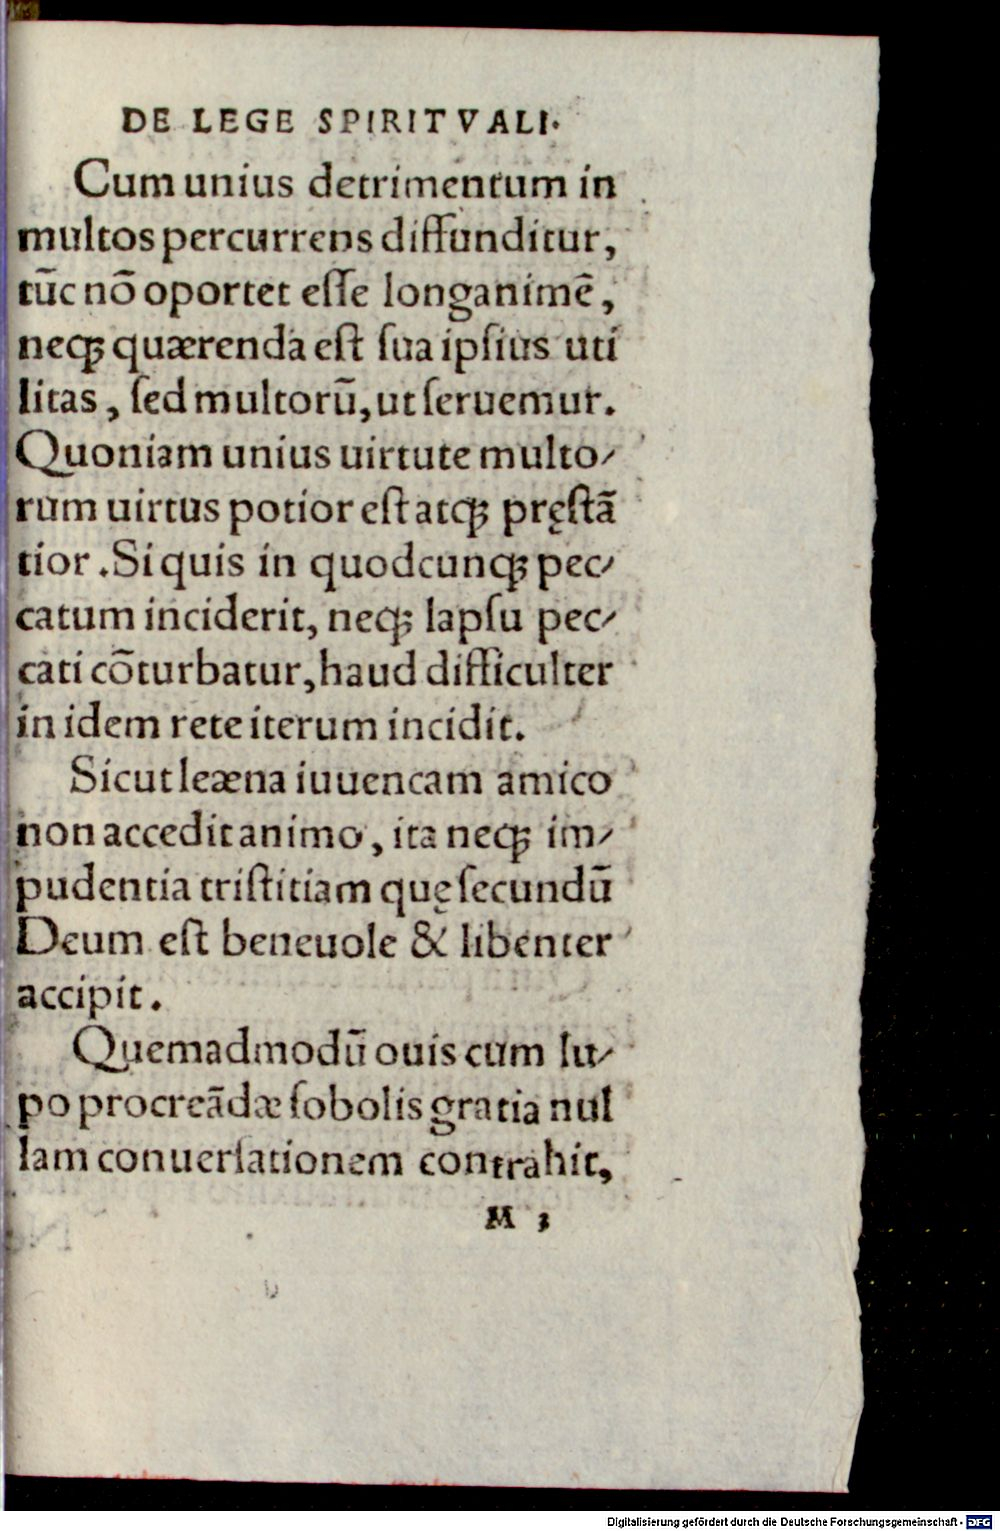 DE LEGE SPIRITVALI.
Cum unius detrimentum in
multos percurrens diffunditur,
tūc nō oportet eſſe longanimē,
neqꝫ quærenda eſt ſua ipſius uti
litas, ſed multorū, ut ſeruemur.
Quoniam unius uirtute multo⸗
rum uirtus potior eſt atqꝫ pręſtā
tior. Si quis in quodcunqꝫ pec⸗
catum inciderit, neqꝫ lapſu pec⸗
cati cōturbatur, haud difficulter
in idem rete iterum incidit.
Sicut leæna iuuencam amico
non accedit animo, ita neqꝫ im⸗
pudentia triſtitiam quę ſecundū
Deum eſt beneuole & libenter
accipit.
Quemadmodū ouis cum lu⸗
po procreādæ ſobolis gratia nul
lam conuerſationem contrahit,
M 3
Digitalisierung gefördert durch die Deutsche Forschungsgemeinschaft - DFG